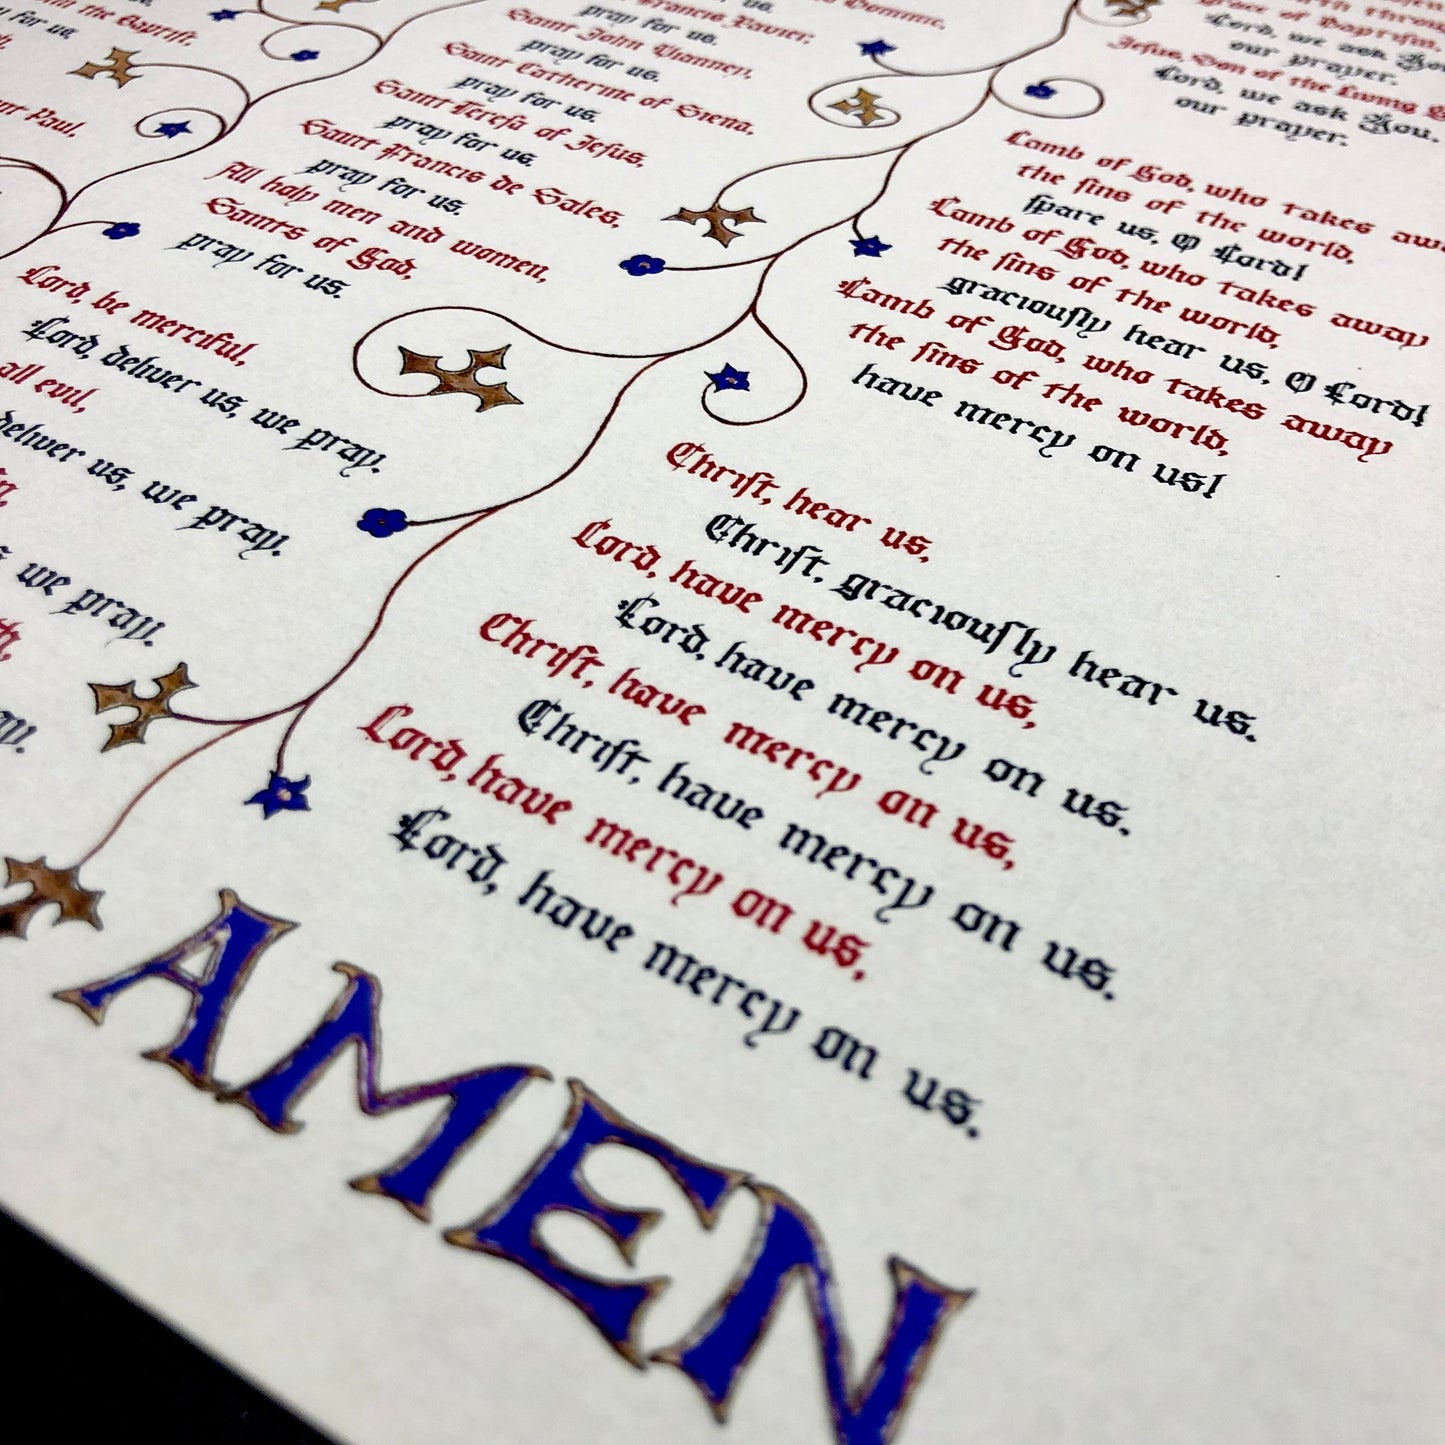 the Baptist,
pray for us,
Saint Paul,
Dominic,
Francis Xavier,
pray for us.
Saint John Vianney,
pray for us.
Saint Catherine of Siena,
pray for us.
Saint Teresa of Jesus,
pray for us.
Saint Francis de Sales,
pray for us.
All holy men and women,
Saints of God,
pray for us.
Lord, be merciful,
Lord, deliver us, we pray.
all evil,
deliver us, we pray.
we pray.
of Baptism,
Lord, we ask You,
our prayer.
Jesus, Son of the Living
Lord, we ask You,
our prayer.
Lamb of God, who takes
the sins of the world,
spare us, O Lord!
Lamb of God, who takes away
the sins of the world,
graciously hear us, O Lord!
Lamb of God, who takes away
the sins of the world,
have mercy on us!
Christ, hear us,
Christ, graciously hear us.
Lord, have mercy on us,
Lord, have mercy on us.
Christ, have mercy on us,
Christ, have mercy on us.
Lord, have mercy on us,
Lord, have mercy on us.
AMEN